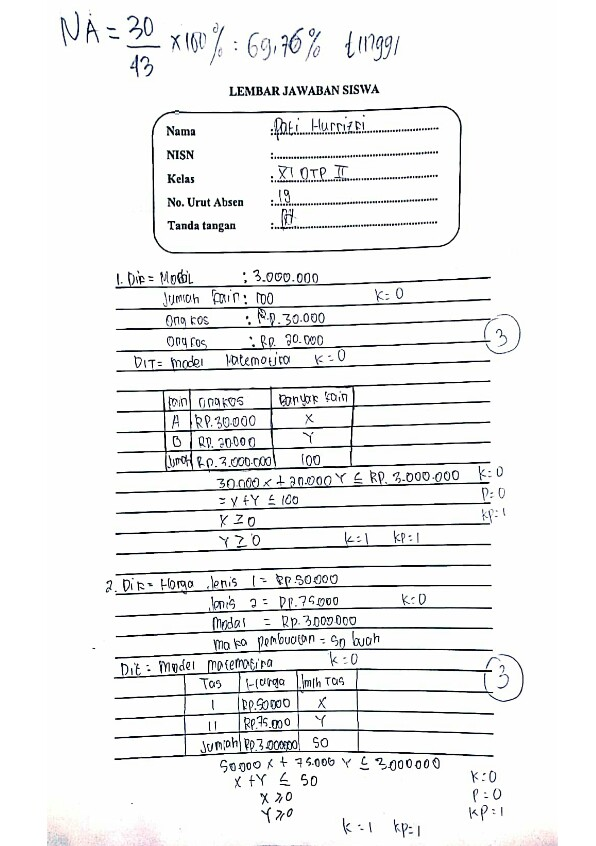 NA = 30/43 x100% : 69,76%
LEMBAR JAWABAN SISWA
Nama : Pati Hurrizri
NISN :
Kelas : XI OTP II
No. Urut Absen : 19
Tanda tangan :
1. Dik = Modal : 3.000.000
Jumlah kain : 100 K=0
Ongkos : Rp. 30.000
Ongkos : Rp. 20.000
3
DIT = Model Matematika K=0
kain ongkos Banyak kain
A RP. 30.000 X
B RP. 20000 Y
Jumlah Rp. 3.000.000 100
30.000 x + 20.000 Y ≤ RP. 3.000.000 K=0
= x + Y ≤ 100 P=0
X ≥ 0 KP=1
Y ≥ 0 K=1 KP=1
2. Dik = Harga Jenis 1 = Rp. 50.000
Jenis 2 = Rp. 75.000 K=0
Modal = Rp. 3000000
maka pembuatan = 50 buah
Dit = Model matematika K=0
3
Tas Harga Jmlh Tas
I Rp. 50000 X
II Rp. 75.000 Y
Jumlah Rp. 3.000000 50
50.000 X + 75.000 Y ≤ 3000000
X + Y ≤ 50 K=0
X ≥ 0 P=0
Y ≥ 0 KP=1
K=1 KP=1